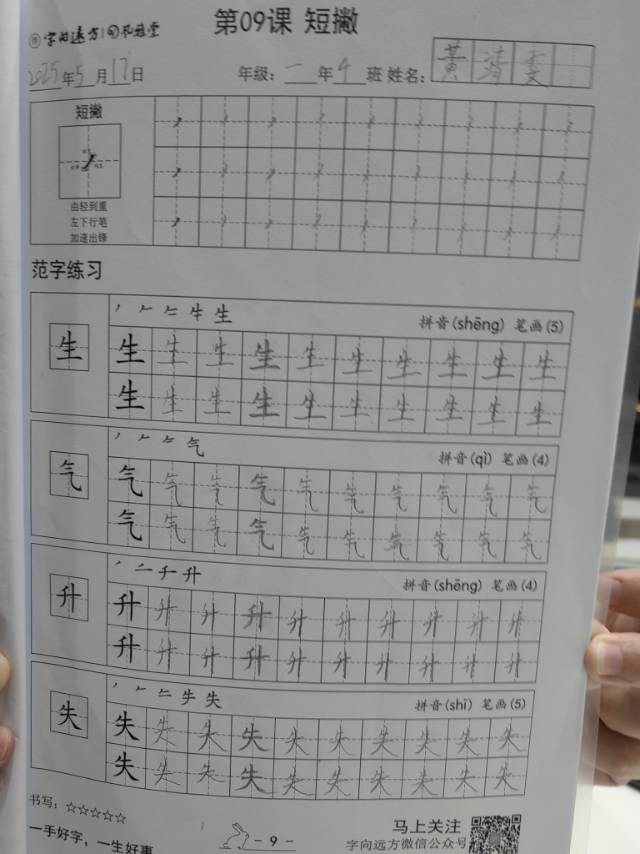 字向远方|句孔雅堂 第09课 短撇
2025年5月17日 年级：一年4班 姓名：黄靖雯
短撇
由轻到重
左下行笔
加速出锋
范字练习
生 拼音(shēng) 笔画(5)
生 生 生 生 生 生 生 生 生 生 生
生 生 生 生 生 生 生 生 生 生
气 拼音(qì) 笔画(4)
气 气 气 气 气 气 气 气 气 气 气
气 气 气 气 气 气 气 气 气 气
升 拼音(shēng) 笔画(4)
升 升 升 升 升 升 升 升 升 升 升
升 升 升 升 升 升 升 升 升 升
失 拼音(shī) 笔画(5)
失 失 失 失 失 失 失 失 失 失 失
失 失 失 失 失 失 失 失 失 失
书写：☆☆☆☆☆
一手好字，一生好事
- 9 -
马上关注
字向远方微信公众号